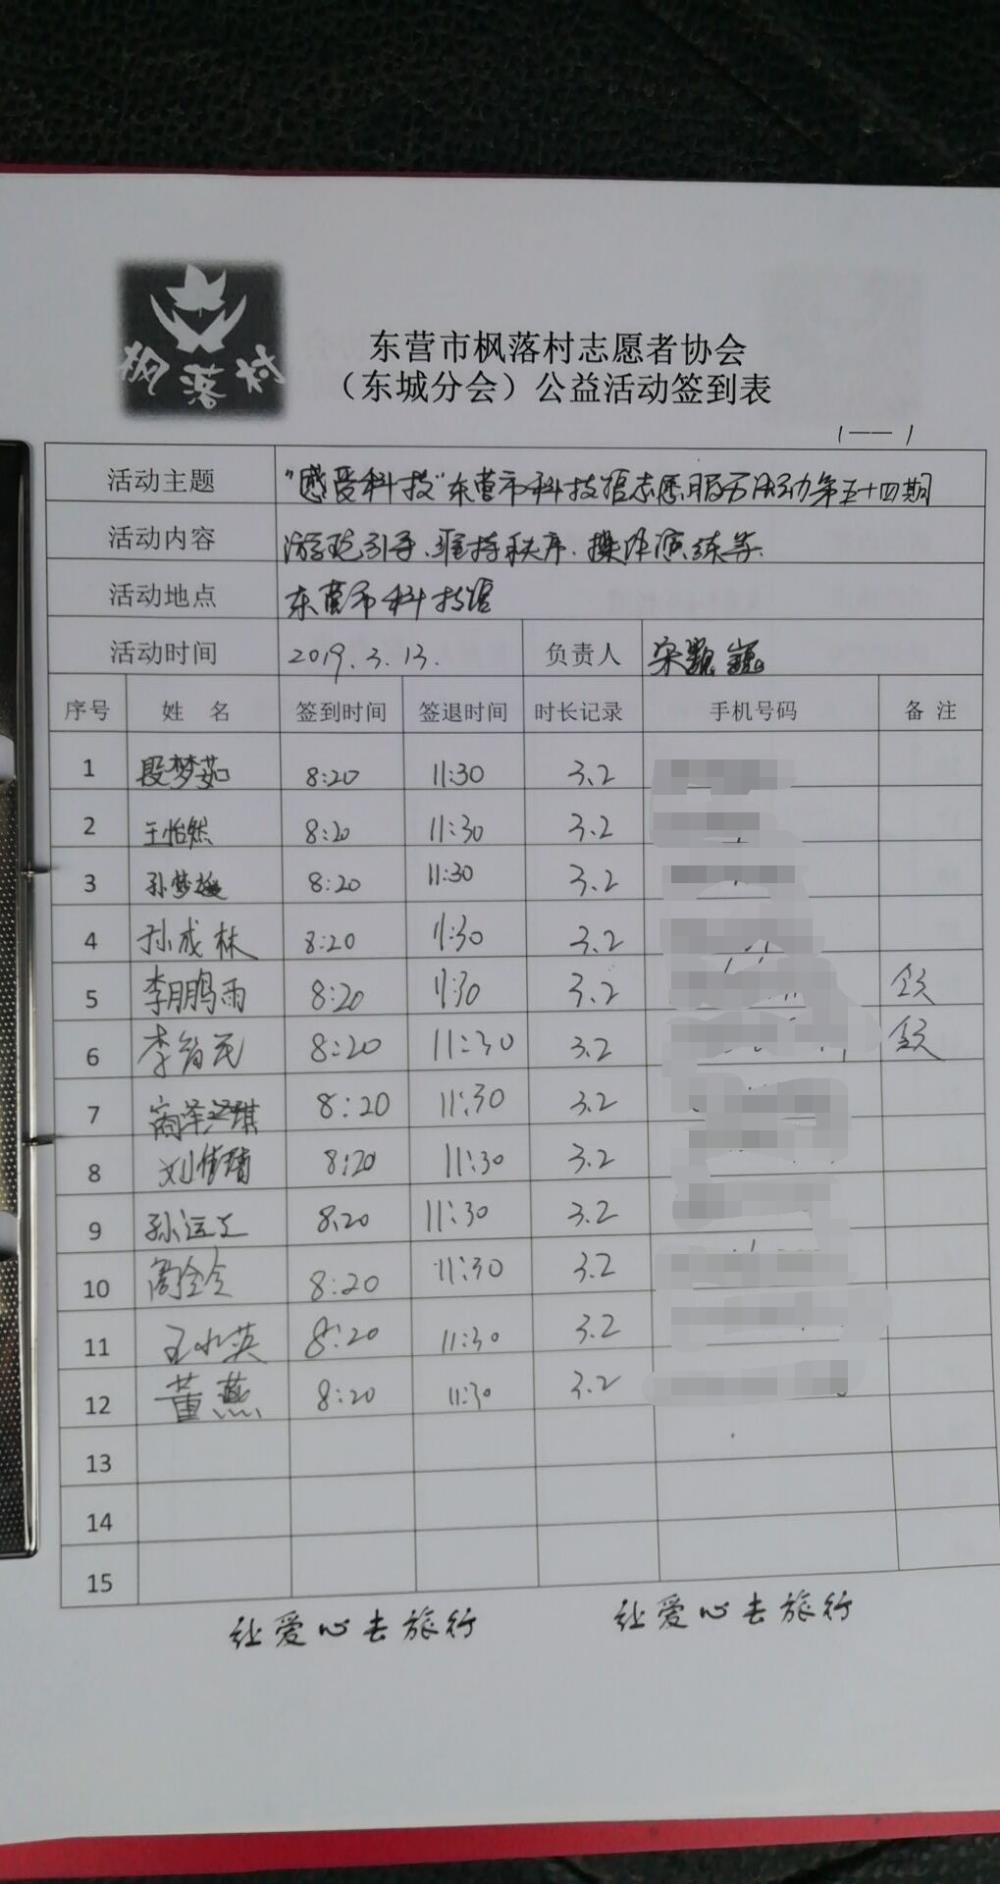 枫落村
东营市枫落村志愿者协会
（东城分会）公益活动签到表
1——1
活动主题 "感受科技"东营市科技馆志愿服务活动第五十四期
活动内容 游玩引导、维持秩序、操作演练等.
活动地点 东营市科技馆
活动时间 2019.3.13. 负责人 宋巍巍
序号 姓 名 签到时间 签退时间 时长记录 手机号码 备 注
1 段梦茹 8:20 11:30 3.2
2 王怡然 8:20 11:30 3.2
3 孙梦 8:20 11:30 3.2
4 孙成林 8:20 11:30 3.2
5 李鹏雨 8:20 11:30 3.2
6 李 8:20 11:30 3.2
7 8:20 11:30 3.2
8 刘倩倩 8:20 11:30 3.2
9 孙运工 8:20 11:30 3.2
10 周全令 8:20 11:30 3.2
11 王水英 8:20 11:30 3.2
12 董燕 8:20 11:30 3.2
13
14
15
让爱心去旅行 让爱心去旅行